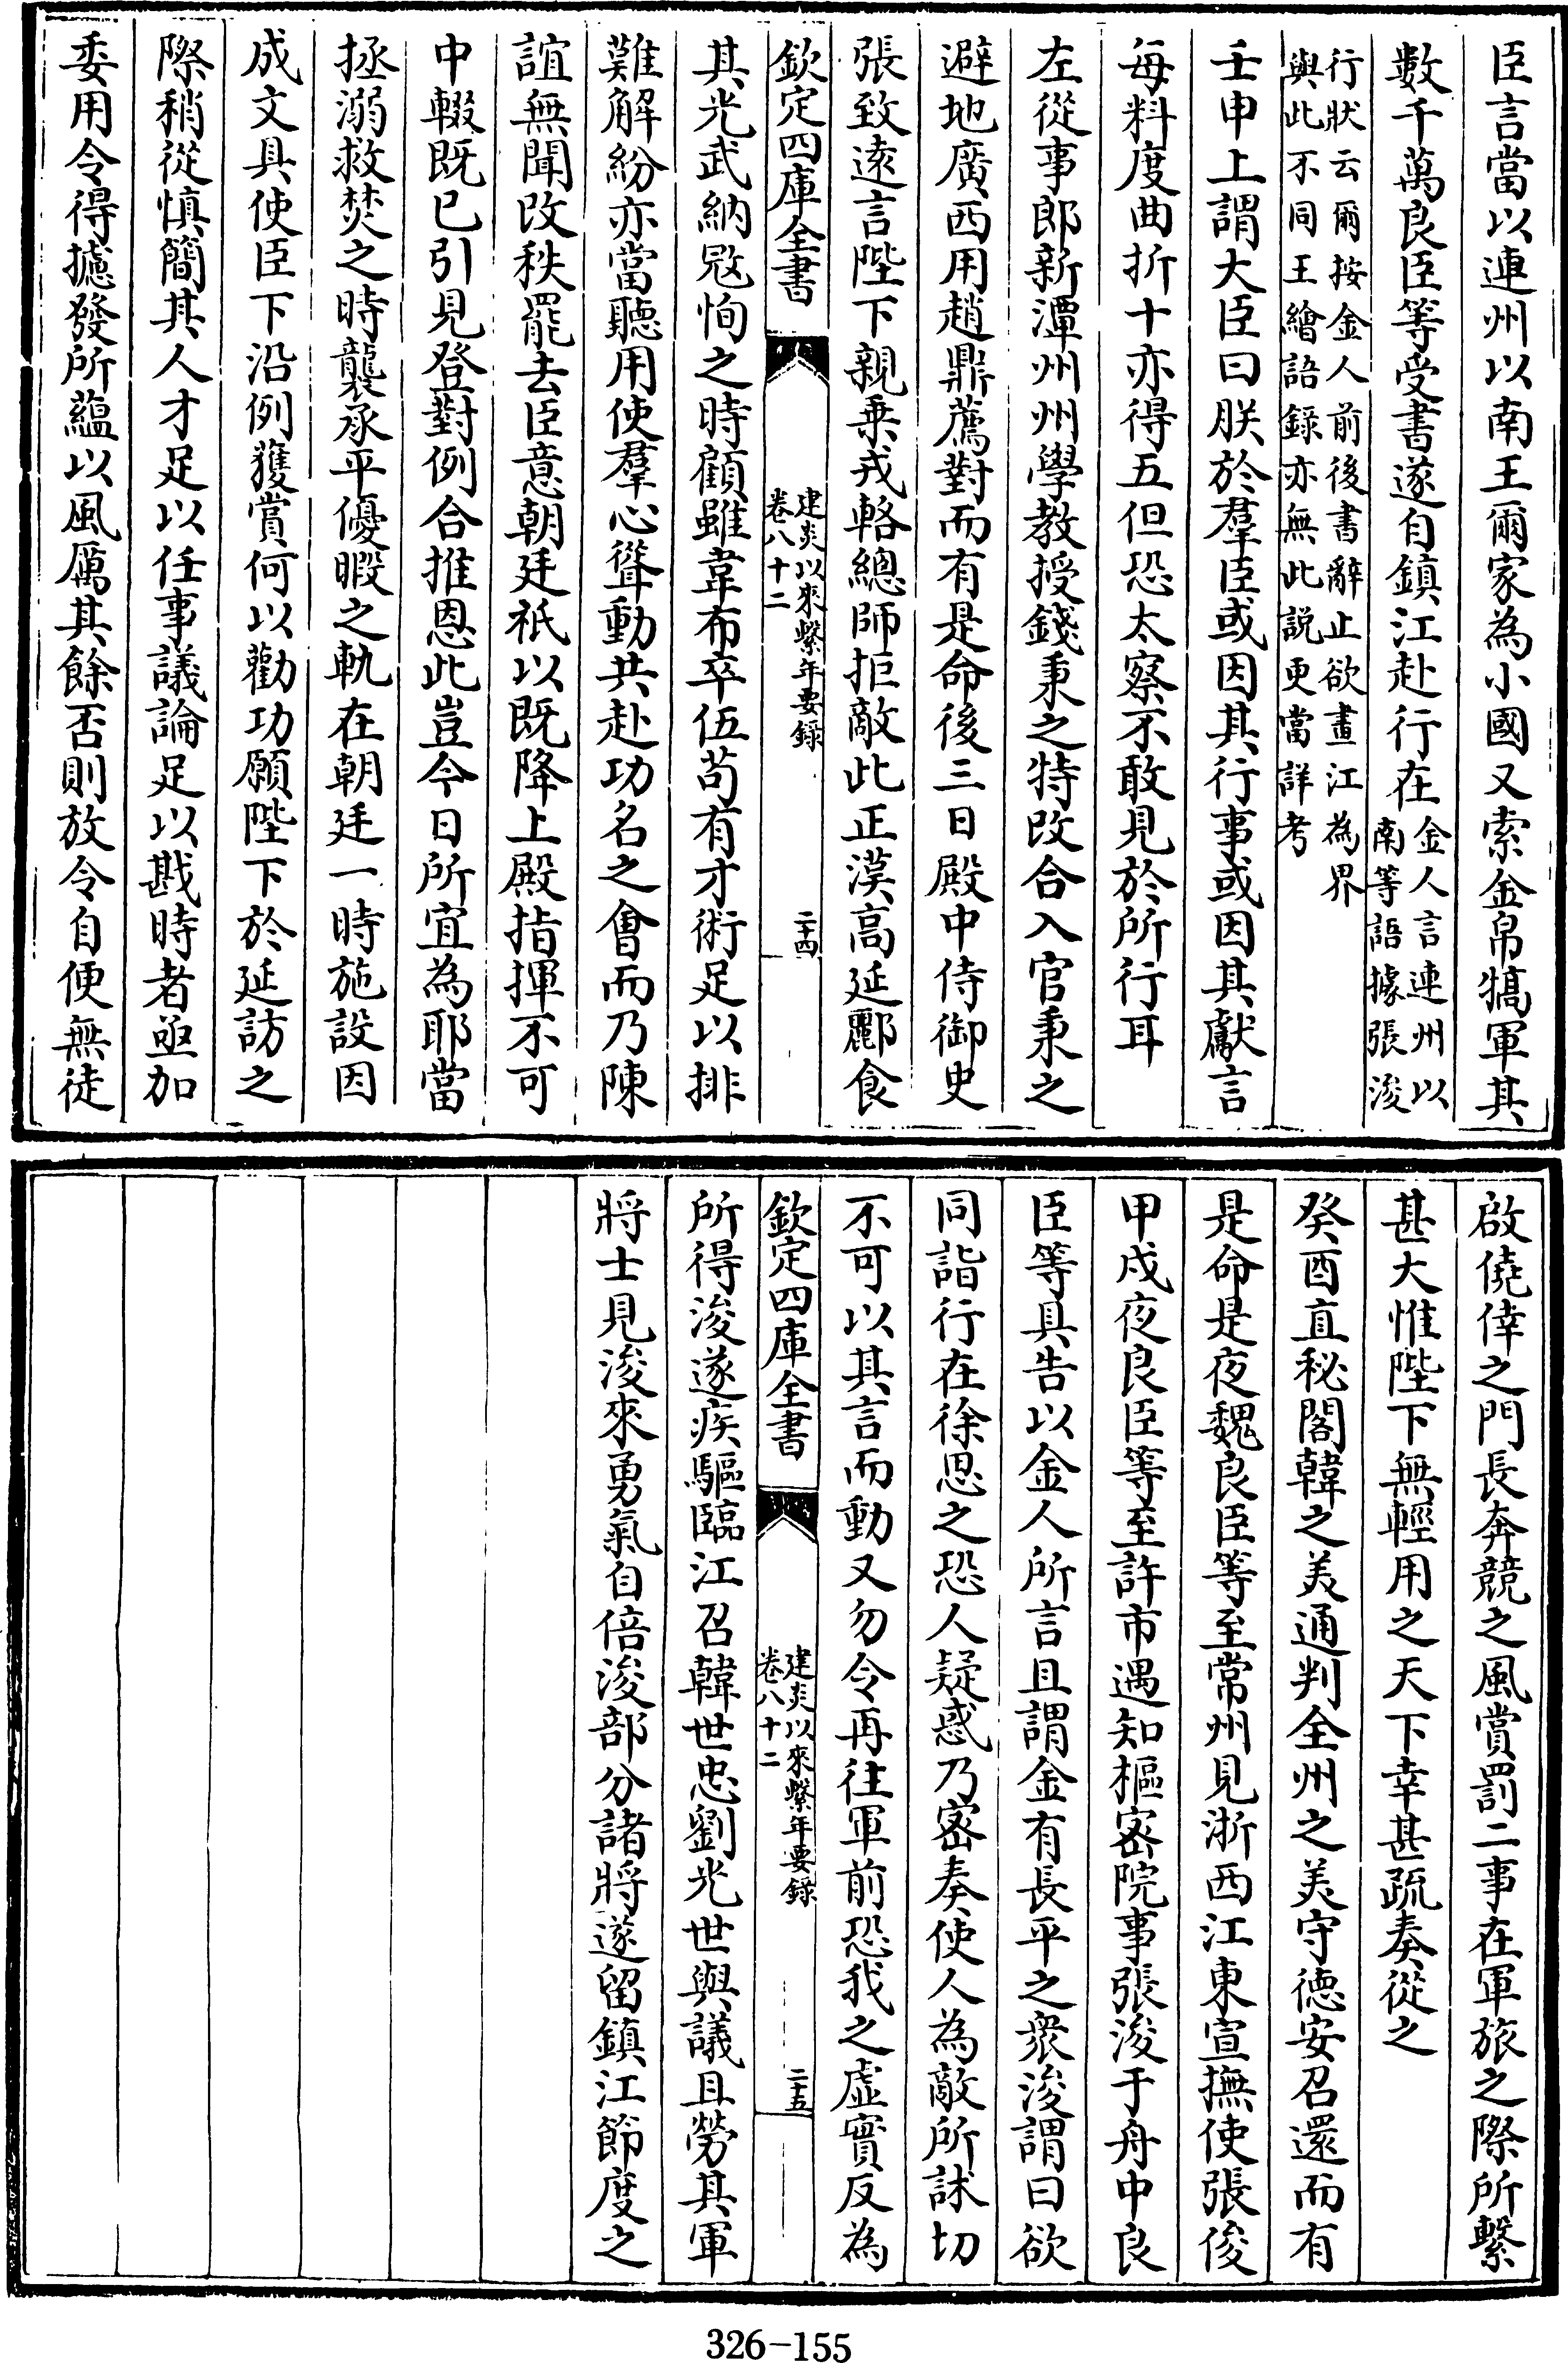 臣言當以連州以南王爾家為小國又索金帛犒軍其
數千萬良臣等受書遂自鎮江赴行在金人言連州以南等語據張浚
行狀云爾按金人前後書辭止欲畫江為界
與此不同王繪語錄亦無此説更當詳考
壬申上謂大臣曰朕於羣臣或因其行事或因其獻言
每料度曲折十亦得五但恐太察不敢見於所行耳
左從事郎新潭州州學教授錢秉之特改合入官秉之
避地廣西用趙鼎薦對而有是命後三日殿中侍御史
張致逺言陛下親乗戎輅總師拒敵此正漢高延酈食
欽定四庫全書
建炎以來繫年要錄
卷八十二
二十四
其光武納冦恂之時顧雖韋布卒伍苟有才術足以排
難解紛亦當聽用使羣心聳動共赴功名之會而乃陳
誼無聞改秩罷去臣意朝廷祇以既降上殿指揮不可
中輟既已引見登對例合推恩此豈今日所宜為耶當
拯溺救焚之時襲承平優暇之軌在朝廷一時施設因
成文具使臣下沿例獲賞何以勸功願陛下於延訪之
際稍從慎簡其人才足以任事議論足以戡時者亟加
委用令得攄發所蘊以風厲其餘否則放令自便無徒
啟僥倖之門長奔競之風賞罰二事在軍旅之際所繫
甚大惟陛下無輕用之天下幸甚疏奏從之
癸酉直秘閣韓之美通判全州之美守德安召還而有
是命是夜魏良臣等至常州見浙西江東宣撫使張俊
甲戌夜良臣等至許市遇知樞密院事張浚于舟中良
臣等具告以金人所言且謂金有長平之衆浚謂曰欲
同詣行在徐思之恐人疑惑乃密奏使人為敵所訹切
不可以其言而動又勿令再往軍前恐我之虛實反為
欽定四庫全書
建炎以來繫年要錄
卷八十二
二十五
所得浚遂疾驅臨江召韓世忠劉光世與議且勞其軍
將士見浚來勇氣自倍浚部分諸將遂留鎮江節度之
326-155